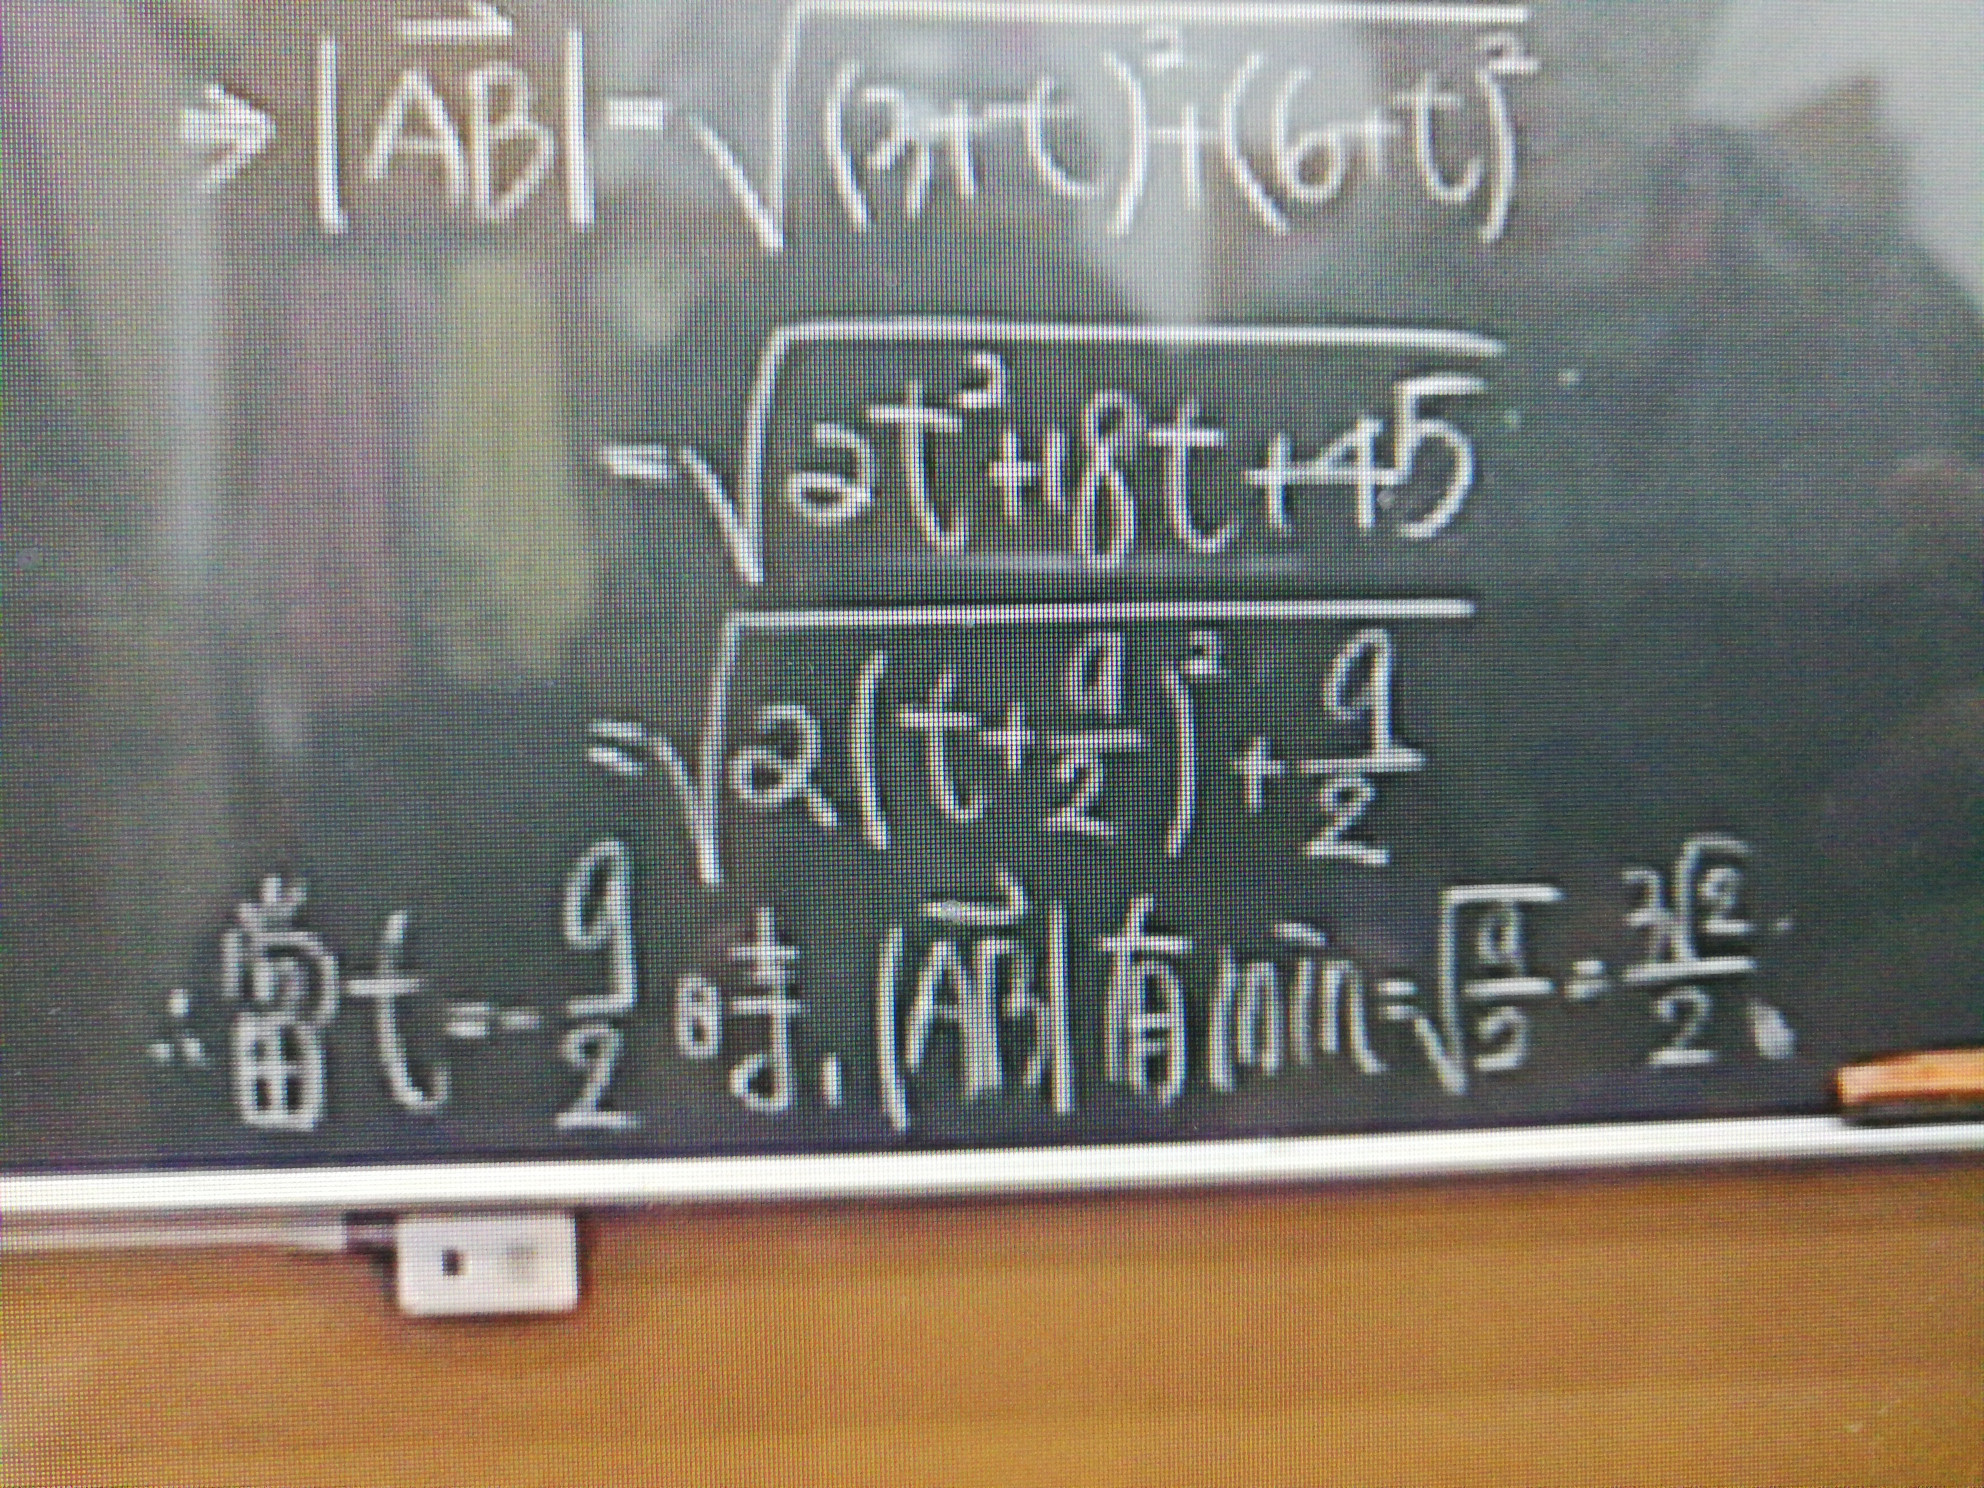 ⇒ |AB⃗| = √((3+t)²+(6+t)²)
= √(2t²+18t+45)
= √(2(t+9/2)²+9/2)
∴ 當 t = -9/2 時, |AB⃗| 有 min = √(9/2) = 3√2/2.